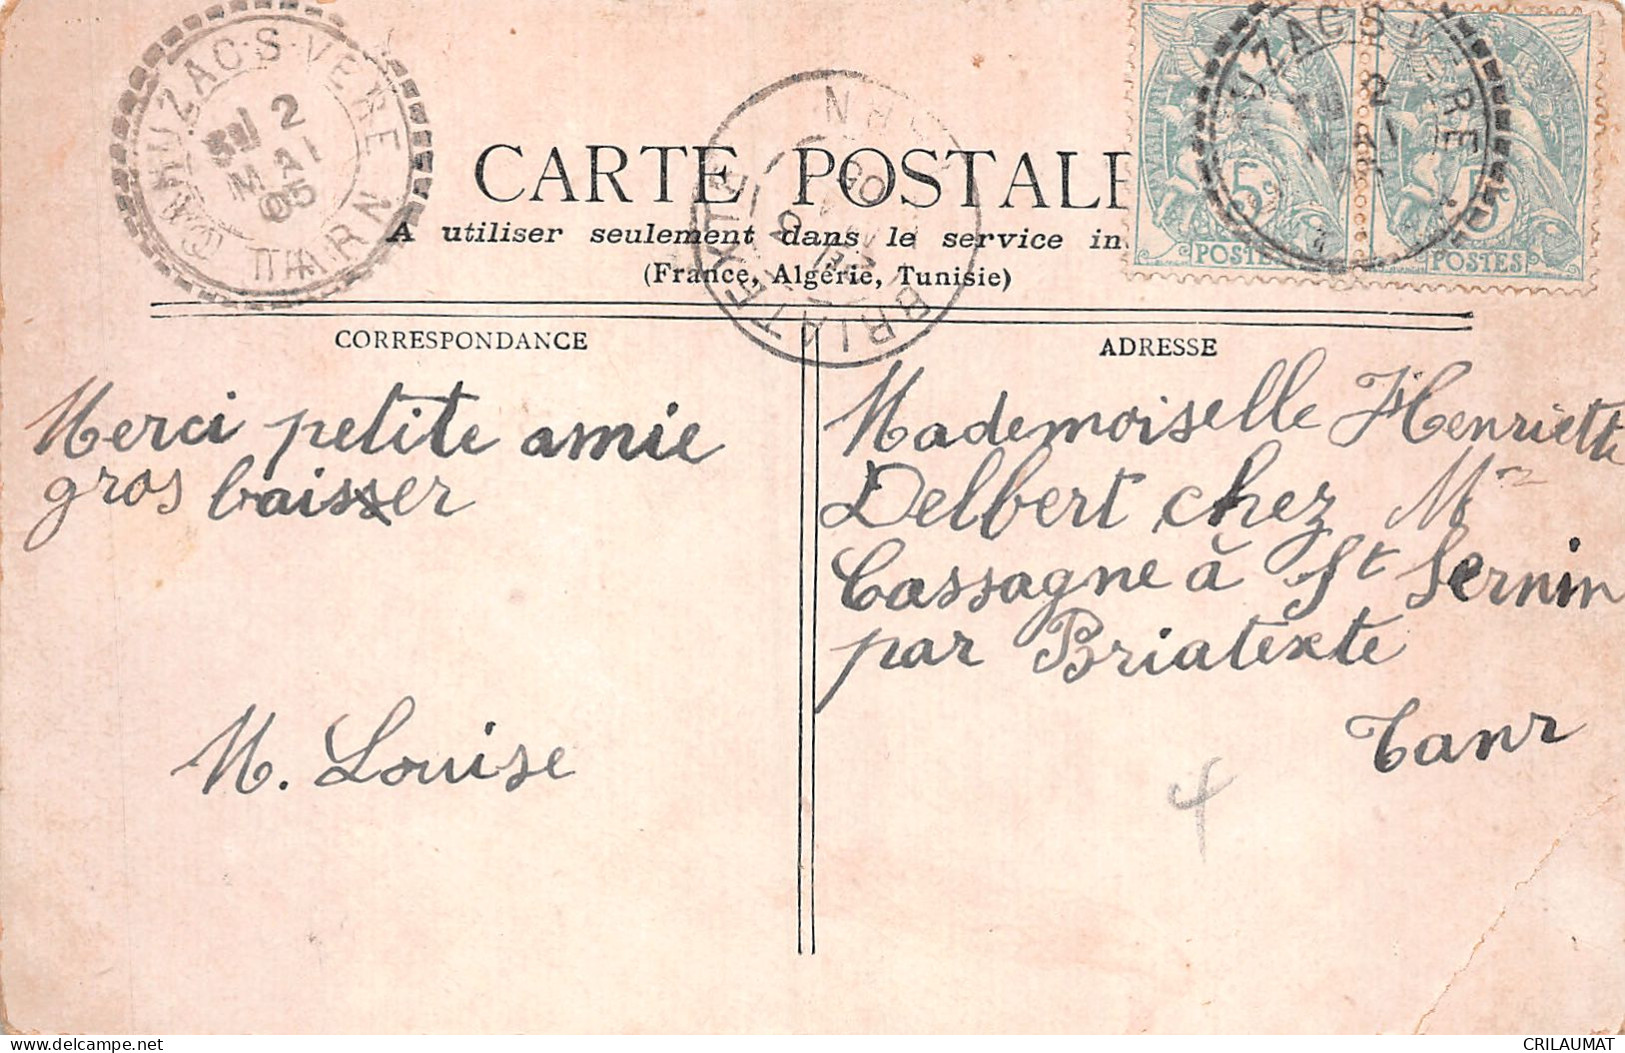 CAHUZAC-S-VERE
3E/ 2
MAI
05
TARN
CARTE POSTALE
A utiliser seulement dans le service in
(France, Algérie, Tunisie)
BRIATEXTE
TARN
5
POSTES
5
POSTES
CORRESPONDANCE
ADRESSE
Merci petite amie
gros baisser
M. Louise
Mademoiselle Henriette
Delbert chez Mr
Cassagne à St Sernin
par Briatexte
Tanr
CRILAUMAT